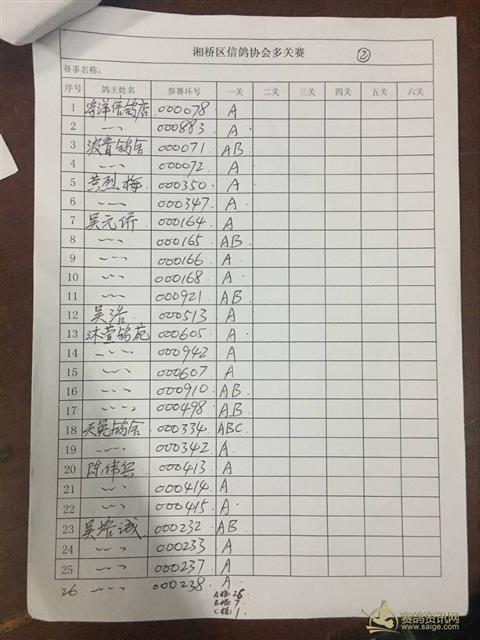 湘桥区信鸽协会多关赛 ②
赛事名称:
序号 鸽主姓名 参赛环号 一关 二关 三关 四关 五关 六关
1 信鸽店 000078 A
2 〃 000883 A
3 波音鸽舍 000071 AB
4 〃 000072 A
5 黄烈梅 000350 A
6 〃 000347 A
7 吴元侨 000164 A
8 〃 000165 AB
9 〃 000166 A
10 〃 000168 A
11 〃 000921 AB
12 吴浩 000513 A
13 沐萱鸽苑 000605 A
14 〃 000942 A
15 〃 000607 A
16 〃 000910 AB
17 〃 000498 AB
18 鸽舍 000334 ABC
19 〃 000342 A
20 陈伟 000413 A
21 〃 000414 A
22 〃 000415 A
23 吴 诚 000232 AB
24 〃 000233 A
25 〃 000237 A
26 〃 000238 A
A组: 26
B组: 7
C组: 1
赛鸽资讯网
www.saige.com